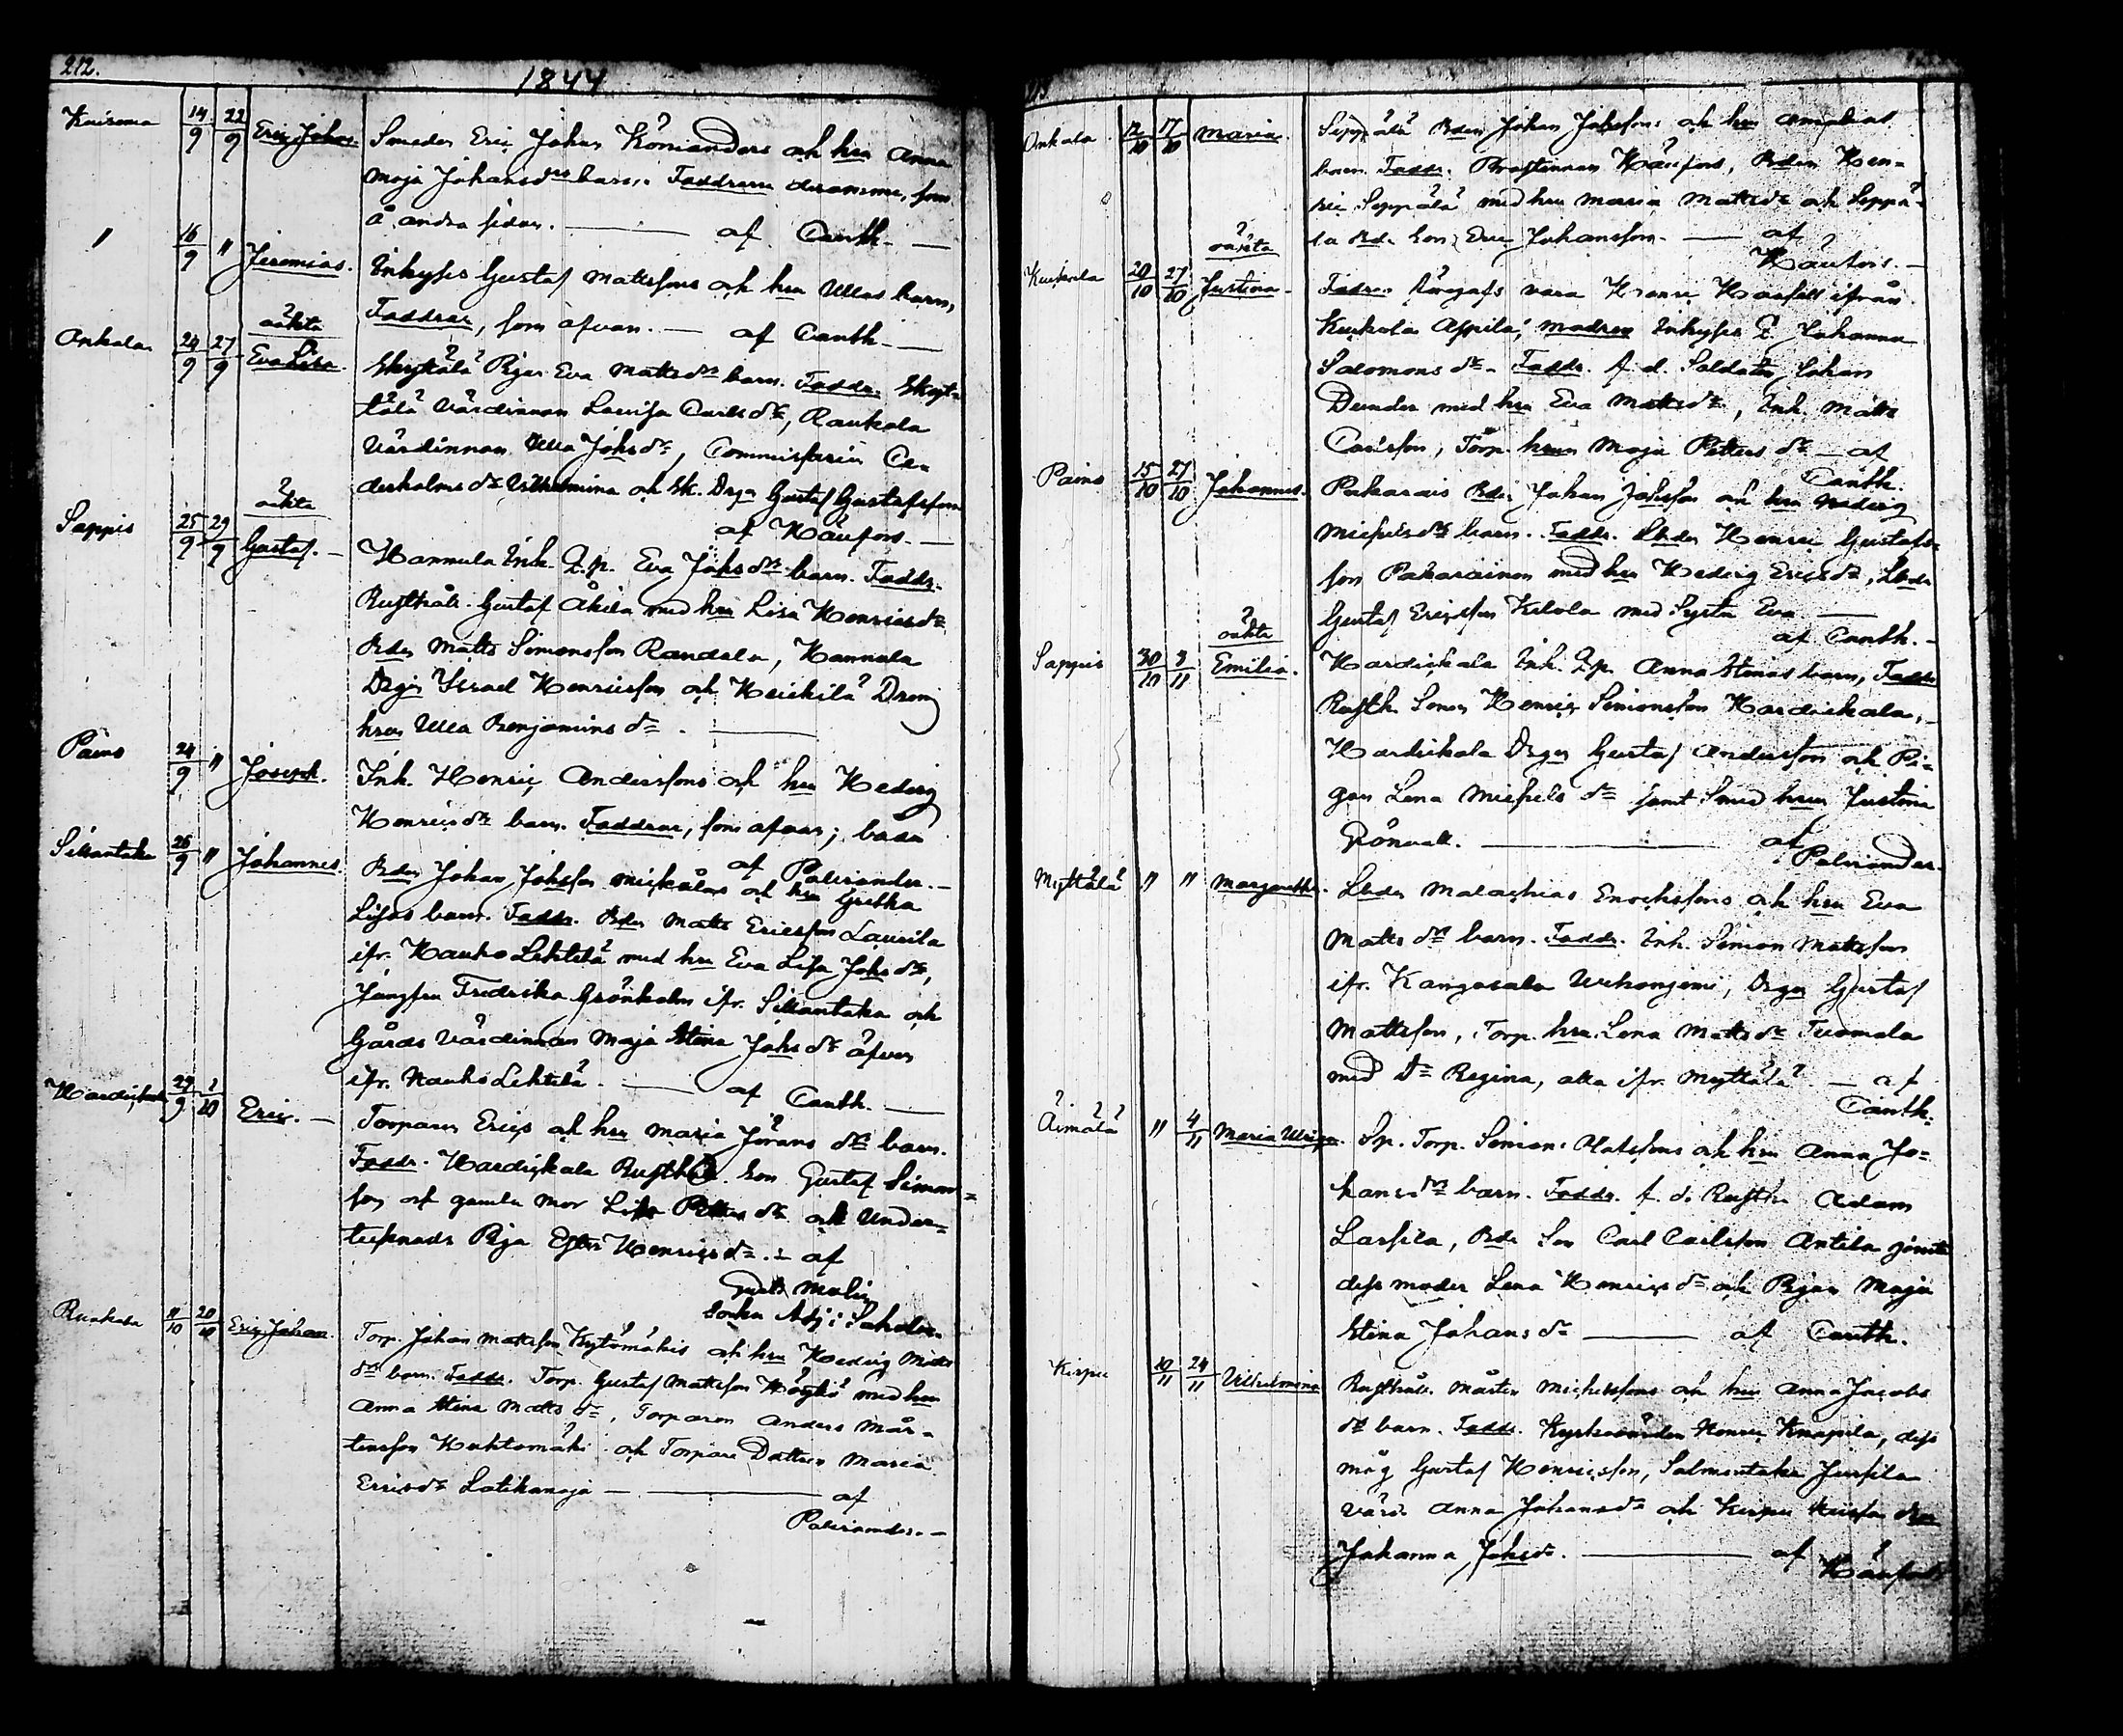 212.
1844
Kuisema 14/9 22/9 Eric Johan. Smeden Eric Johan Komanders och hru Anna
Maja Johansdrs barn. Faddrarne desamme, som
å andra sidan. — af Canth. —
" 16/9 " Jeremias. Inhyses Gustaf Mattssons och hru Ullas barn,
Faddrar, som ofvan. — af Canth. —
oäkta
Onkala 24/9 27/9 Eva Lisa. Skyttälä Pigan Eva Mattsdrs barn. Faddr. Skyt-
tälä Värdinnan Lovisa Carlsdr, Raukola
Värdinnan Ulla Johsdr, Commissarien Ce-
derholms dr Vilhelmina och Sk. Drgn Gustaf Gustafsson
af Häufors. —
oäkta
Sappis 25/9 29/9 Gustaf. — Hannula Inh. Q.p. Eva Johsdrs barn. Faddr.
Rusthåll. Gustaf Åkila med hru Lisa Henricsdr
Bden Matts Simonsson Randala, Hannula
Drgn Israel Henricsson och Heickilä Dreng
hrun Ulla Benjaminsdr. —
Paino 24/9 " Joseph. Inh. Henric Anderssons och hru Hedvig
Henricsdrs barn. Faddrar, som ofvan; båda
af Palvander. —
Sillantaka 26/9 " Johannes. Bden Johan Johsson Mickolas och hru Gretha
Lisas barn. Faddr. Bden Matts Ericsson Laurila
ifr. Hauho Lehtelä med hru Eva Lisa Johsdr,
Jungfru Fredrika Grönholm ifr. Sillantaka och
Gårds Värdinnan Maja Stina Johsdr äfven
ifr. Hauho Lehtelä. — af Canth. —
29/9 1/10 Eric. — Torparen Erics och hru Maria Jörans drs barn.
Faddr. Hardickala Rusth. Son Gustaf Simons-
son och gamla Mor Lisa Petters dr och Under-
tecknads Piga Ester Henricsdr. — af
Gust. Malin
Socku Adj: i Sahalax
Raukola 11/10 20/10 Eric Johan. Torp. Johan Mattsson Kytömäkis och hru Hedvig Matts
drs barn. Faddr. Torp. Gustaf Mattsson med hru
Anna Stina Matts dr, Torparen Anders Mår-
tensson Huhtamäki och Torpare Dottren Maria
Ericsdr Latikanoja — af
Palvander. —
Onkala 12/10 17/10 Maria. Seppälä Bden Johan Johssons och hru Amalias
barn. Faddr. Prostinnan Häufors, Bden Hen-
ric Seppälä med hru Maria Mattsdr och Seppä-
lä Bde Son Eric Johansson. — af
Häufors. —
oäkta
Kuckola 20/10 27/10 Justina. Fadren föregafs vara Henric Hasfelt ifrån
Kuckola Assila, Modren Inhyses Q. Johanna
Salomons dr. Faddr. f.d. Soldaten Johan
Dunder med hru Eva Mattsdr, Inh. Matts
Carlsson, Torp. hrun Maja Petters dr — af
Canth.
Paino 15/10 27/10 Johannes. Pakarais Bden Johan Johsson och hru Hedvig
Michelsdrs barn. Faddr. Bden Henric Gustafs-
son Pakarainen med hru Hedvig Ericsdr, Lbde
Gustaf Ericsson Kilvola med Syster Eva —
af Canth. —
oäkta
Sappis 30/10 3/11 Emilia. Hardickala Inh. Q.p. Anna Stinas barn, Faddr
Rusth. Sonen Henric Simonsson Hardickala,
Hardickala Drgn Gustaf Andersson och Pi-
gan Lena Michels dr samt Smed hrun Justina
Grönvall. — af
Palvander.
Myttälä " " Margaretha. Lbden Malachias Enochssons och hru Eva
Matts drs barn. Faddr. Inh. Simon Mattsson
ifr. Kangasala Vehoniemi, Drgn Gustaf
Mattsson, Torp. hru Lena Matts dr Tuomala
med dr Regina, alla ifr. Myttälä. — af
Canth.
Äimälä " 4/11 Maria Ulrica. Sp. Torp. Simon Matssons och hru Anna Jo-
hansdrs barn. Faddr. f.d. Rusth. Adam
Lassila, Bde Son Carl Carlsson Antila jemte
dess moder Lena Henrics dr och Pigan Maja
Stina Johansdr — af Canth.
Kirpu 10/11 24/11 Vilhelmina Rusthåll. Mårten Michelssons och hru Anna Jacobs
drs barn. Faddr. Kyrkovärden Henric Knapila, dess
måg Gustaf Henricsson, Salmentaka Jussila
värd. Anna Johansdr och Kirpu
Johanna Johsdr. — af Häufors